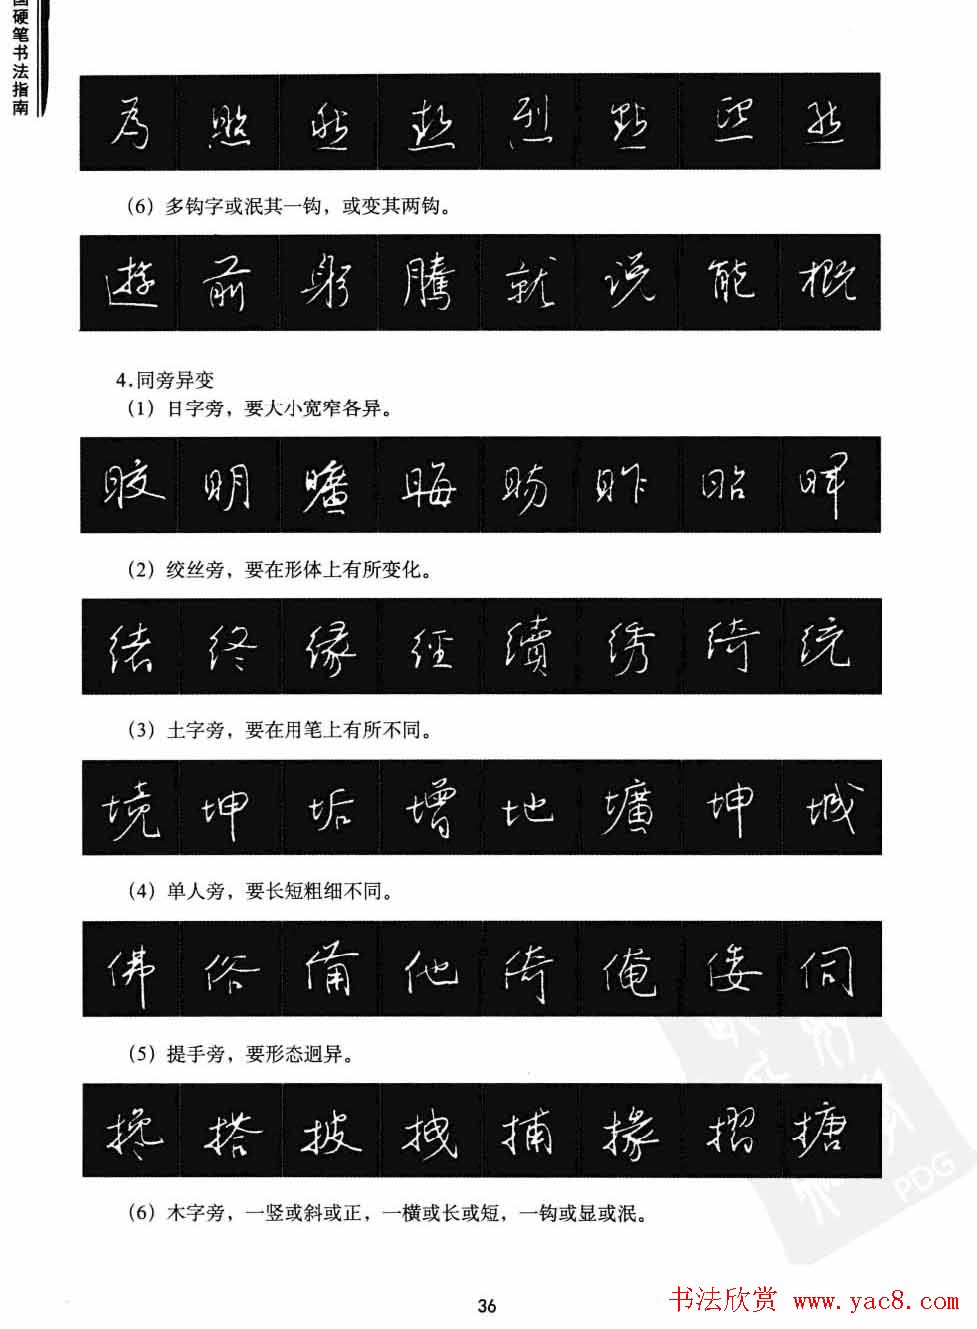 国硬笔书法指南
为 照 然 热 烈 点 熙 然
(6) 多钩字或泯其一钩，或变其两钩。
游 前 躬 騰 就 说 能 概
4.同旁异变
(1) 日字旁，要大小宽窄各异。
明 曠 晦 昨 昭 暉
(2) 绞丝旁，要在形体上有所变化。
绪 终 缘 經 續 绣 绮 统
(3) 土字旁，要在用笔上有所不同。
境 坤 垢 增 地 壙 坤 城
(4) 单人旁，要长短粗细不同。
佛 俗 備 他 倚 俺 倭 伺
(5) 提手旁，要形态迥异。
搀 搭 披 拽 捕 掾 摺 搪
(6) 木字旁，一竖或斜或正，一横或长或短，一钩或显或泯。
PDG
36
书法欣赏 www.yac8.com